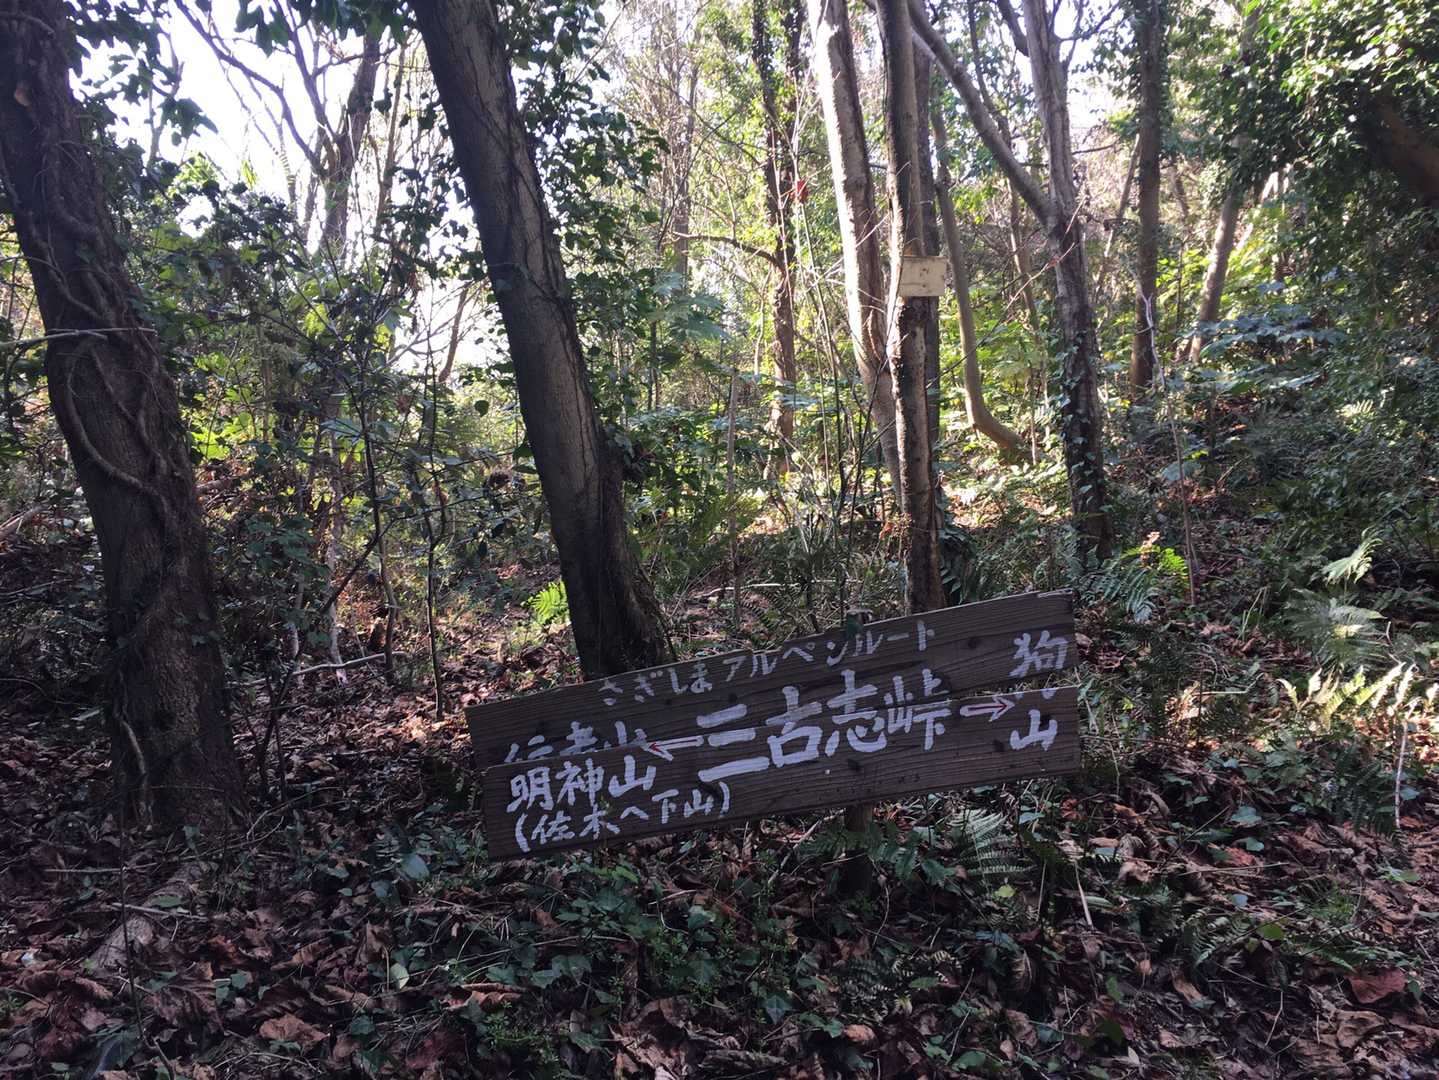 さぎしまアルペンルート
明神山 ← 三古志峠 → 狗山
(佐木へ下山)